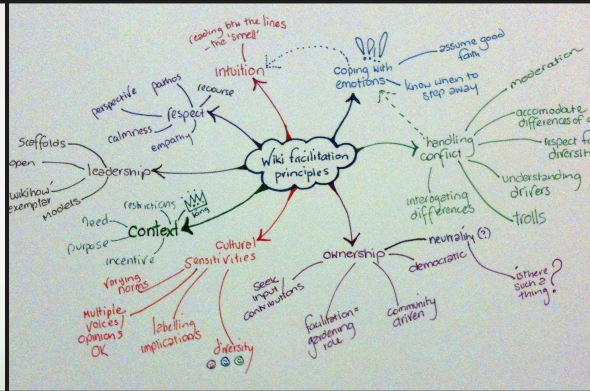 Wiki facilitation
principles
Intuition
reading btw the lines
- the 'smell'
Coping with
emotions
assume good
faith
know when to
step away
handling
conflict
moderation
accomodate
differences of
respect
diversit
understanding
drivers
trolls
interogating
differences
ownership
neutrality (?)
is there
such a
thing?
democratic
community
driven
facilitation =
gardening
role
seek
input/
contributions
Cultural
Sensitivities
varying
norms
Multiple
voices/
opinions
OK
labelling
implications
diversity
Context
restrictions
need
purpose
incentive
leadership
Scaffolds
open
wikihow
exemplar
Models
respect
perspective
pathos
recourse
calmness
empathy